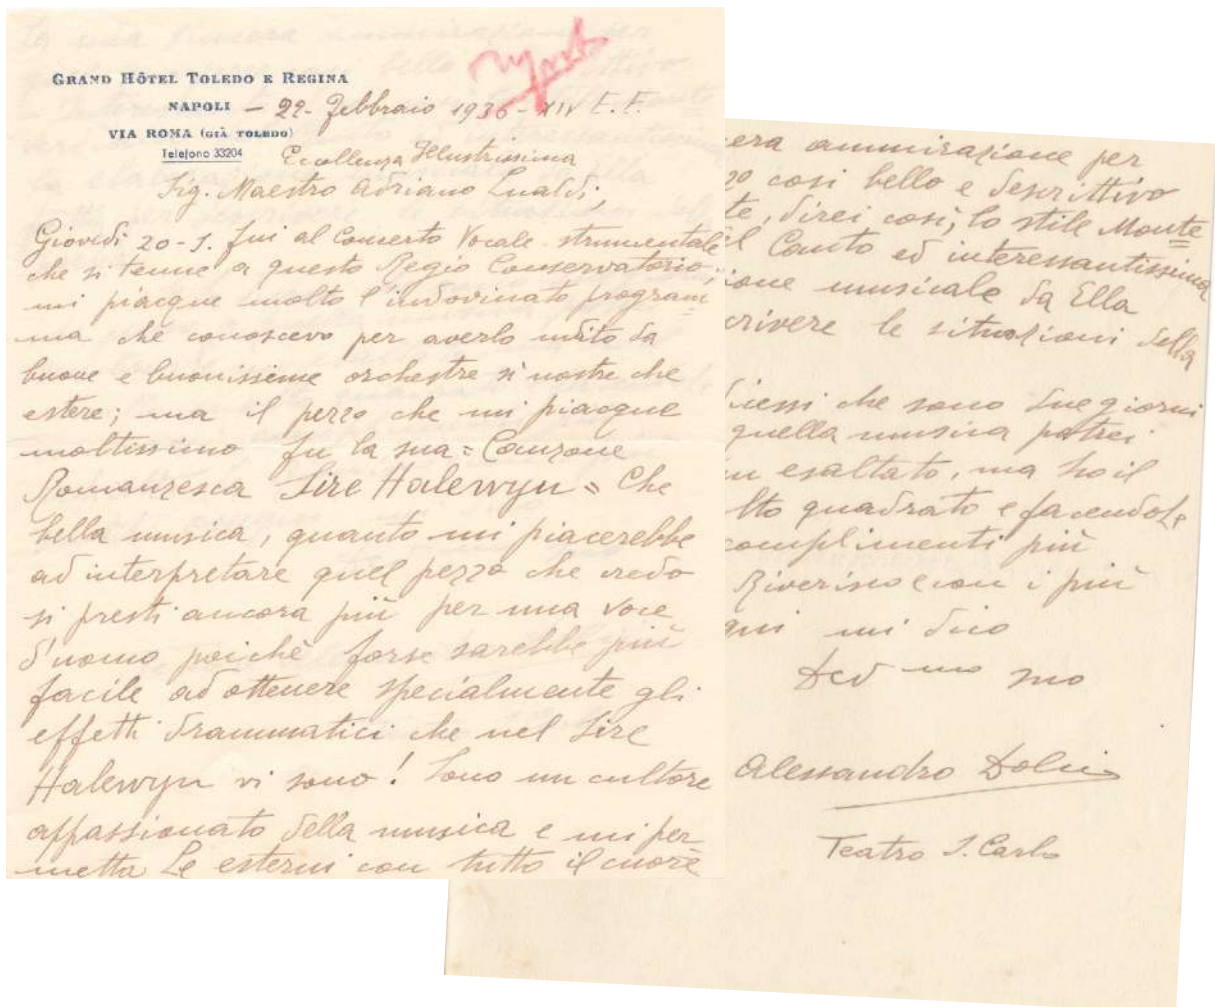 GRAND HÔTEL TOLEDO E REGINA
NAPOLI
VIA ROMA (GIÀ TOLEDO)
Telefono 33204
– 22- Febbraio 1936 - XIV E. F.
Eccellenza Illustrissima
Sig. Maestro Adriano Lualdi,
Giovedì 20-S. fui al Concerto Vocale strumentale
che si tenne a questo Regio Conservatorio;
mi piacque molto l'indovinato program=
ma che conoscevo per averlo udito da
buone e buonissime orchestre sì nostre che
estere; ma il pezzo che mi piacque
moltissimo fu la sua = Canzone
Romanzesca Sire Halewyn = Che
bella musica, quanto mi piacerebbe
ad interpretare quel pezzo che credo
si presti ancora più per una voce
d'uomo poichè forse sarebbe più
facile ad ottenere specialmente gli
effetti drammatici che nel Sire
Halewyn vi sono! Sono un cultore
appassionato della musica e mi per-
metta Le esterni con tutto il cuore
era ammirazione per
zo così bello e descrittivo
te, direi così, lo stile Monte=
l Canto ed interessantissima
ione musicale da Ella
crivere le situazioni della
icessi che sono due giorni
quella musica potrei
un esaltato, ma ho il
lto quadrato e facendole
complimenti più
Riverisco e con i più
qui mi dico
Dev mo suo
Alessandro Dolci
Teatro S. Carlo